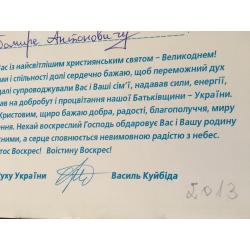 Антоновичу
Вас із найсвітлішим християнським святом – Великоднем!
ми і спільності долі сердечно бажаю, щоб переможний дух
далі супроводжували Вас і Вашу сім'ї, надавав сили, енергії,
на добробут і процвітання нашої Батьківщини – України.
Христовим, щиро бажаю добра, радості, благополуччя, миру
ння. Нехай воскреслий Господь обдаровує Вас і Вашу родину
тнями, а серце сповнюється невимовною радістю з небес.
тос Воскрес! Воістину Воскрес!
Руху України Василь Куйбіда
2013